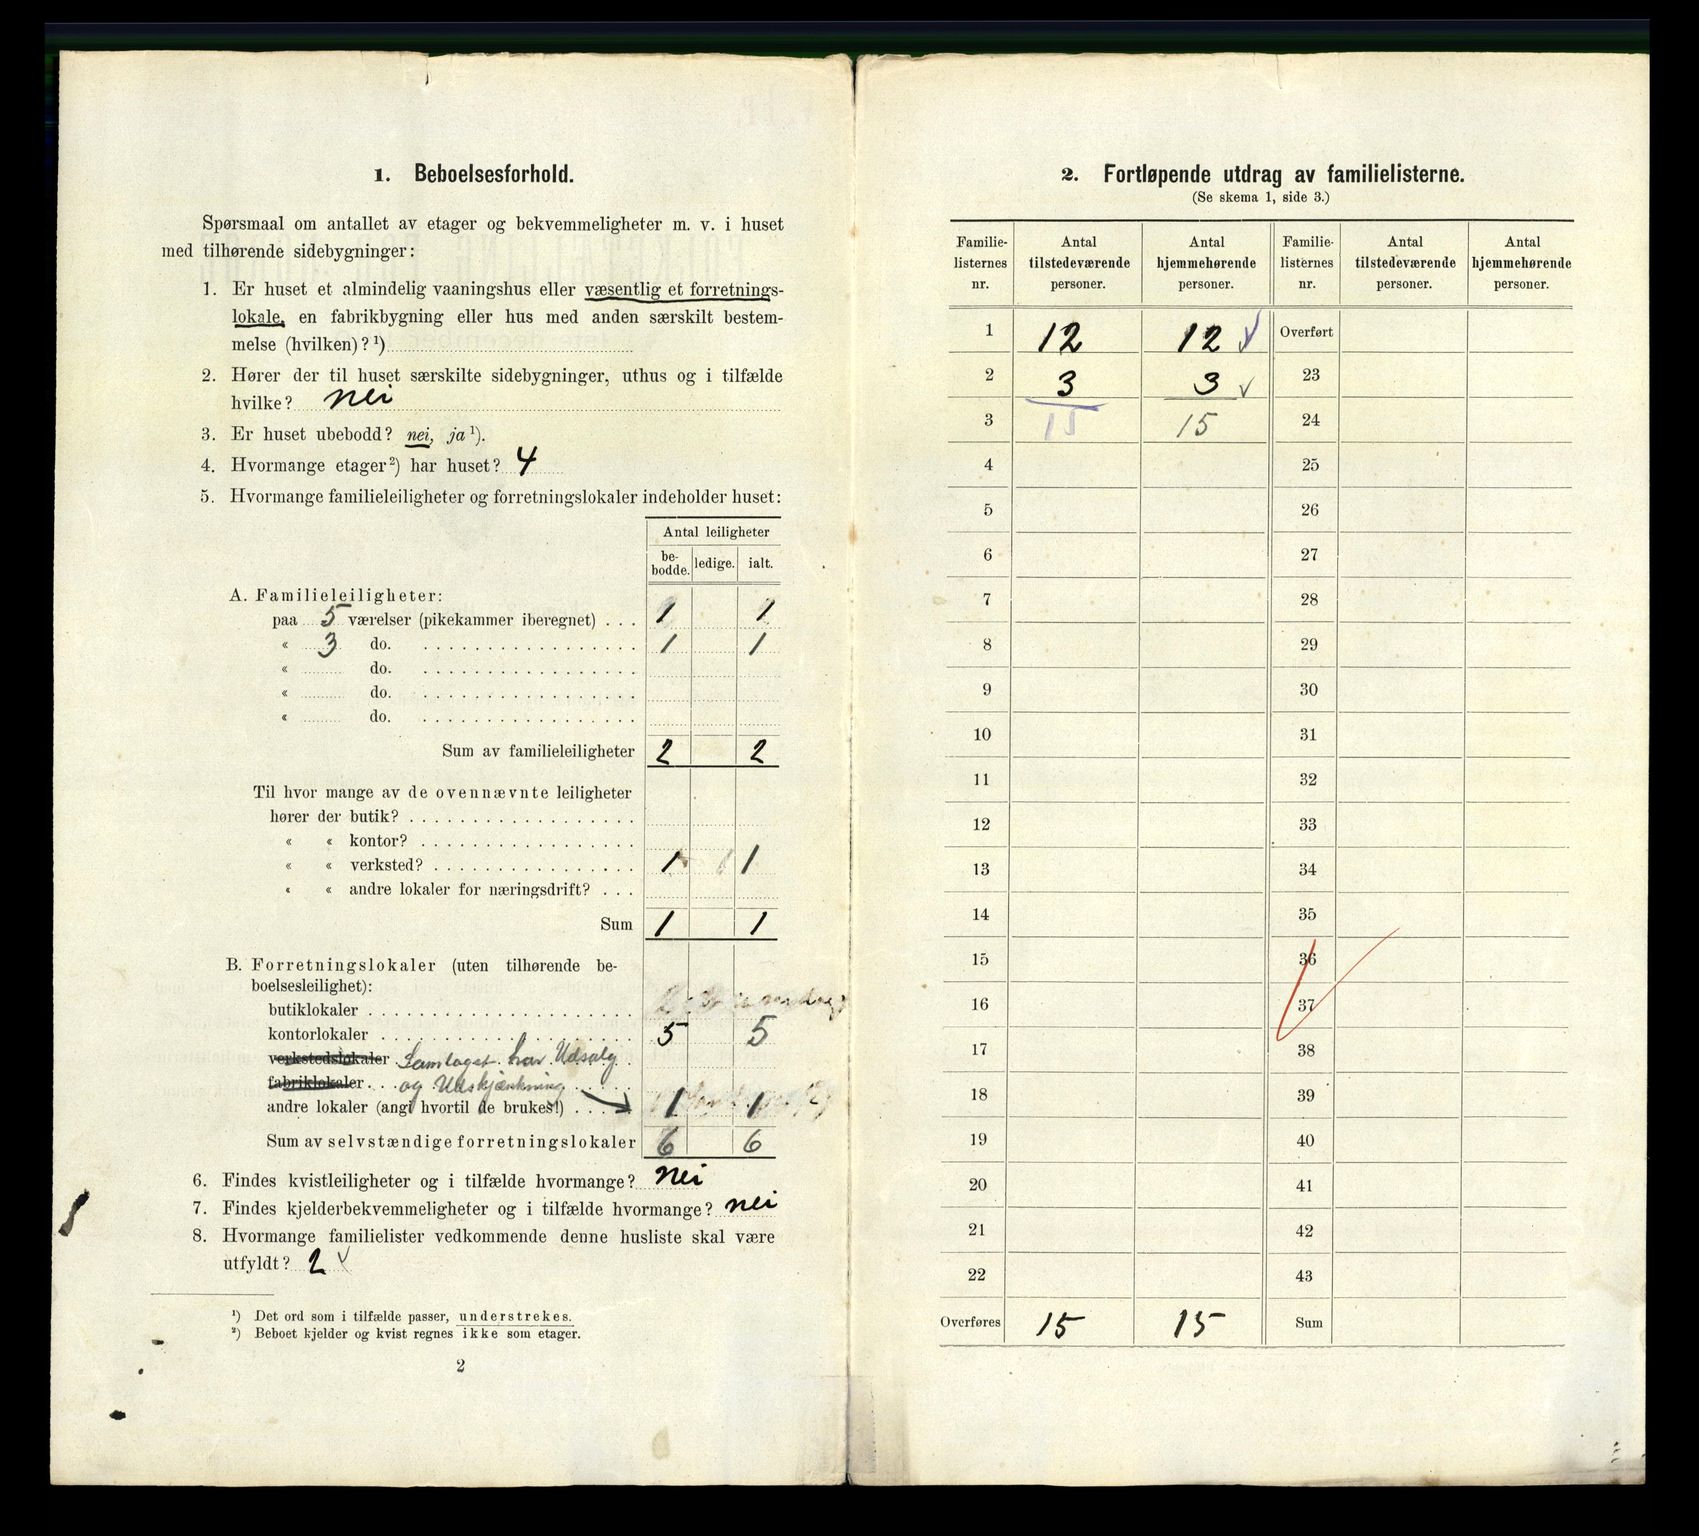 1. Beboelsesforhold.
Spørsmaal om antallet av etager og bekvemmeligheter m. v. i huset
med tilhørende sidebygninger:
1. Er huset et almindelig vaaningshus eller væsentlig et forretnings-
lokale, en fabrikbygning eller hus med anden særskilt bestem-
melse (hvilken)? ¹)
2. Hører der til huset særskilte sidebygninger, uthus og i tilfælde
hvilke? nei
3. Er huset ubebodd? nei, ja ¹).
4. Hvormange etager ²) har huset? 4
5. Hvormange familieleiligheter og forretningslokaler indeholder huset:
Antal leiligheter
be-
bodde. ledige. ialt.
A. Familieleiligheter:
paa 5 værelser (pikekammer iberegnet) . . . 1 1
« 3 do. 1 1
« do.
« do.
« do.
Sum av familieleiligheter 2 2
Til hvor mange av de ovennævnte leiligheter
hører der butik?
« « kontor?
« « verksted? 1 1
« « andre lokaler for næringsdrift? . . .
Sum 1 1
B. Forretningslokaler (uten tilhørende be-
boelsesleilighet):
butiklokaler
kontorlokaler 5 5
verkstedslokaler Samlaget har Udsalg
fabriklokaler og Udskjænkning
andre lokaler (angi hvortil de brukes!) . . . . 1 1
Sum av selvstændige forretningslokaler 6 6
6. Findes kvistleiligheter og i tilfælde hvormange? nei
7. Findes kjelderbekvemmeligheter og i tilfælde hvormange? nei
8. Hvormange familielister vedkommende denne husliste skal være
utfyldt? 2 √
¹) Det ord som i tilfælde passer, understrekes.
²) Beboet kjelder og kvist regnes ikke som etager.
2
2. Fortløpende utdrag av familielisterne.
(Se skema 1, side 3.)
Familie- Antal Antal Familie- Antal Antal
listernes tilstedeværende hjemmehørende listernes tilstedeværende hjemmehørende
nr. personer. personer. nr. personer. personer.
1 12 12 √ Overført
2 3 3 √ 23
3 15 15 24
4 25
5 26
6 27
7 28
8 29
9 30
10 31
11 32
12 33
13 34
14 35
15 36
16 37
17 38
18 39
19 40
20 41
21 42
22 43
Overføres 15 15 Sum